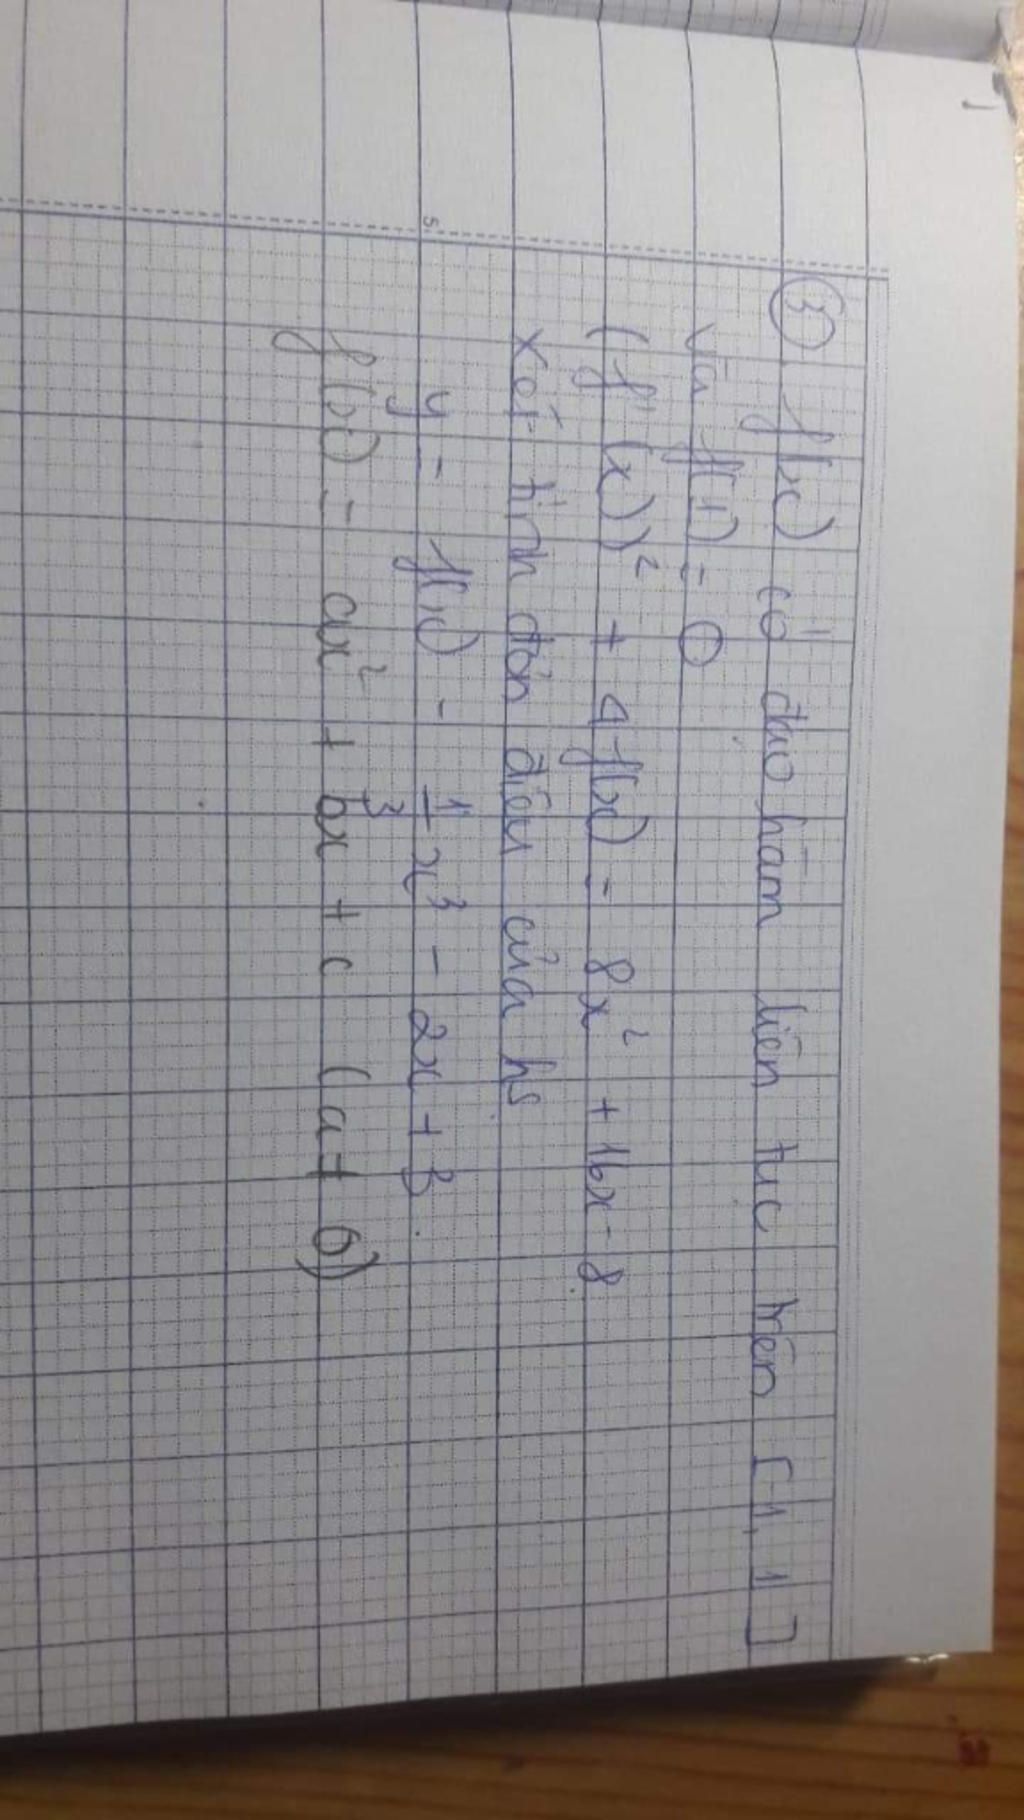 ③. f(x) có đạo hàm liên tục trên [1, 1]
và f(1) = 0
(f'(x))² + 4f(x) = 8x² + 16x - 8
xét tính đơn điệu của hs
y = f(x) - 1/3 x³ - 2x + 3.
f(x) = ax² + bx + c (a ≠ 0)